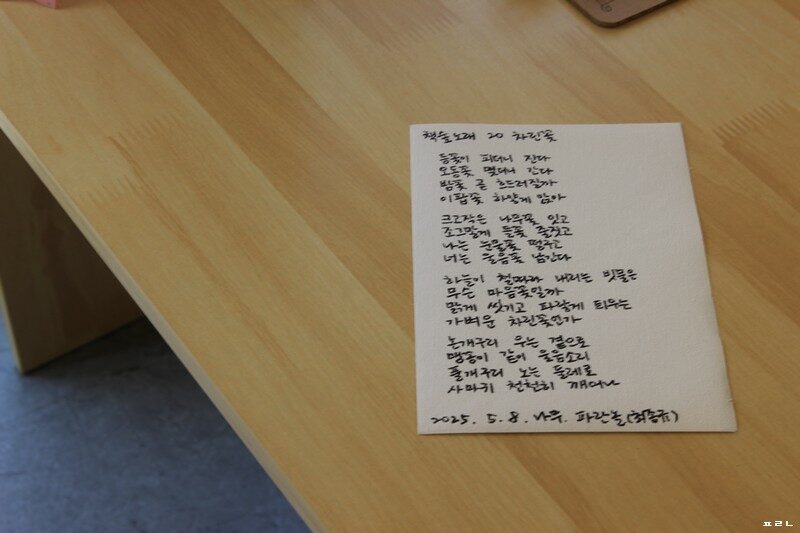 책숲노래 20 차린꽃
등꽃이 피더니 진다
오동꽃 맺더니 간다
밤꽃 곧 흐드러질까
이팝꽃 하얗게 앉아
크고작은 나무꽃 있고
조그맣게 들꽃 줄짓고
나는 눈물꽃 떨구고
너는 웃음꽃 남긴다
하늘이 철따라 내리는 빗물은
무슨 마음꽃일까
맑게 씻기고 파랗게 틔우는
가벼운 차린꽃인가
논개구리 우는 곁으로
맹꽁이 같이 울음소리
풀개구리 노는 둘레로
사마귀 천천히 깨어나
2025. 5. 8. 나무. 파란놀(최종규)
ㅍㄹㄴ